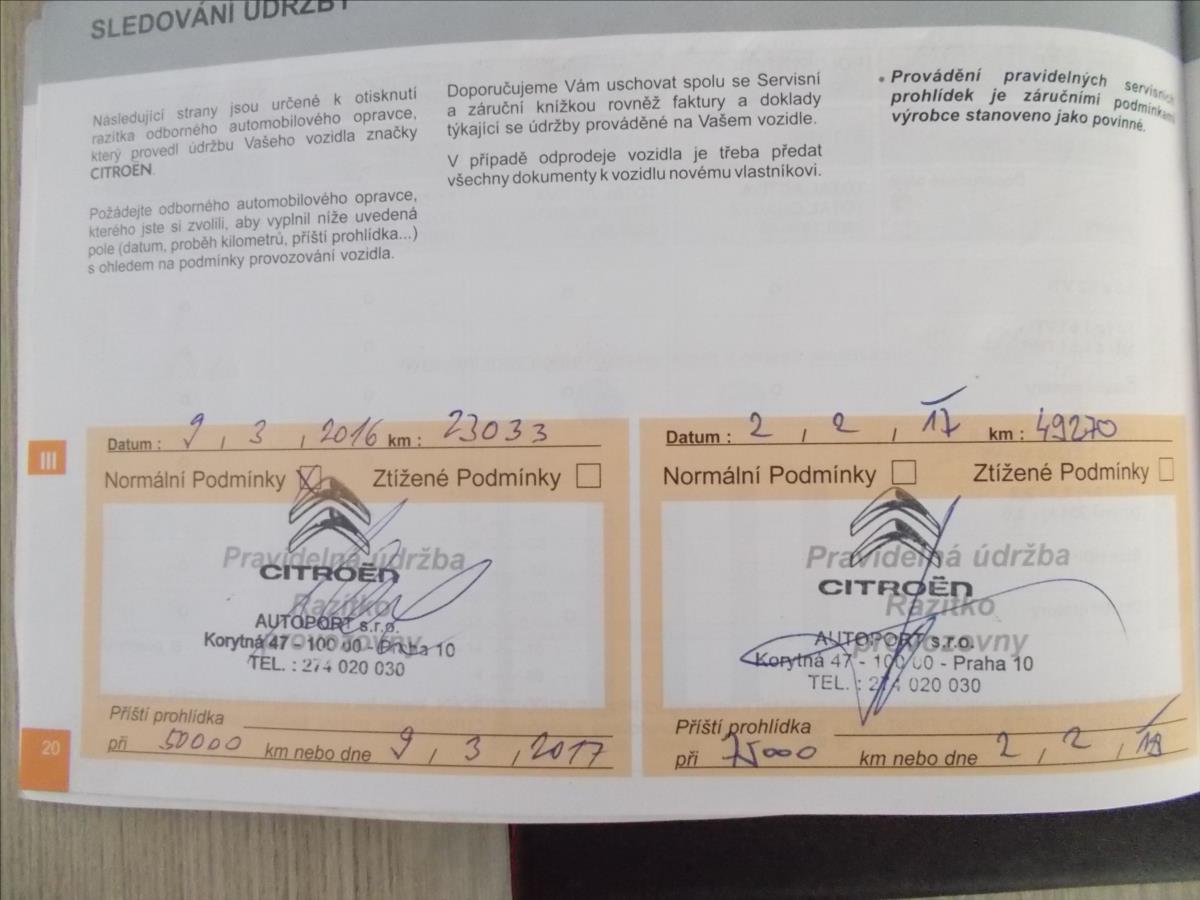 SLEDOVÁNÍ ÚDRŽBY
Následující strany jsou určené k otisknutí
razítka odborného automobilového opravce,
který provedl údržbu Vašeho vozidla značky
CITROËN.
Požádejte odborného automobilového opravce,
kterého jste si zvolili, aby vyplnil níže uvedená
pole (datum, proběh kilometrů, příští prohlídka...)
s ohledem na podmínky provozování vozidla.
Doporučujeme Vám uschovat spolu se Servisní
a záruční knížkou rovněž faktury a doklady
týkající se údržby prováděné na Vašem vozidle.
V případě odprodeje vozidla je třeba předat
všechny dokumenty k vozidlu novému vlastníkovi.
• Provádění pravidelných servisních
prohlídek je záručními podmínkami
výrobce stanoveno jako povinné.
III
Datum : 9 , 3 , 2016 km : 23033
Normální Podmínky Ztížené Podmínky
Pravidelná údržba
CITROËN
Razítko
AUTOPORT s.r.o.
provozovny
Korytná 47 - 100 00 - Praha 10
TEL. : 274 020 030
Příští prohlídka
při 50000 km nebo dne 9 , 3 , 2017
Datum : 2 , 2 , 17 km : 49270
Normální Podmínky Ztížené Podmínky
Pravidelná údržba
CITROËN
Razítko
AUTOPORT s.r.o.
provozovny
Korytná 47 - 100 00 - Praha 10
TEL. : 274 020 030
Příští prohlídka
při 75000 km nebo dne 2 , 2 , 18
20